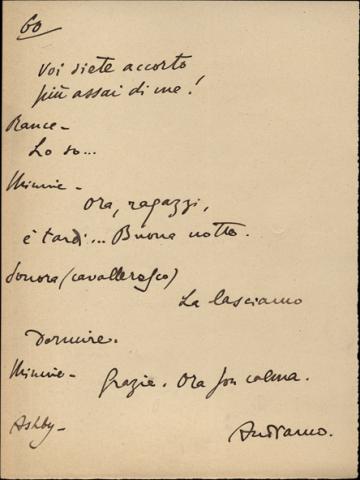 60
Voi siete accorto
più assai di me!
Rance-
Lo so...
Minnie-
Ora, ragazzi,
è tardi... Buona notte.
Sonora (cavalleresco)
La lasciamo
Dormire.
Minnie-
Grazie. Ora son calma.
Ashby-
Andiamo.